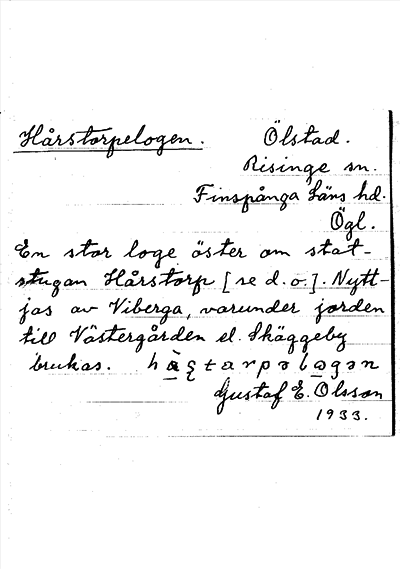 Hårstorpelogen. Ölstad.
Risinge sn.
Finspånga läns hd.
Ögl.
En stor loge öster om stat-
stugan Hårstorp [se d.o.]. Nytt-
jas av Viberga, varunder jorden
till Västergården el. Skäggeby
brukas.
Gustaf E. Olsson
1933.